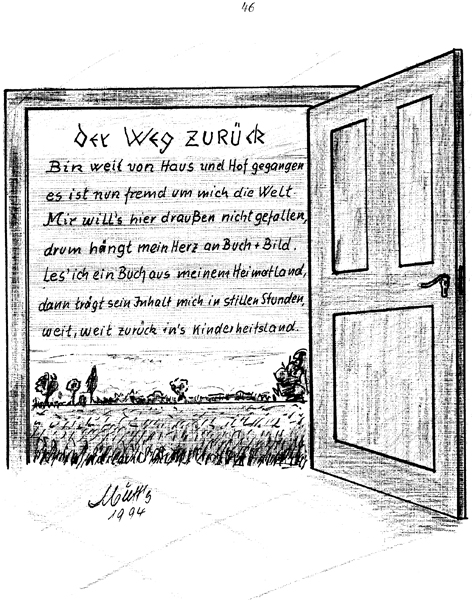 46
Der Weg zurück
Bin weit von Haus und Hof gegangen
es ist nun fremd um mich die Welt.
Mir will's hier draußen nicht gefallen,
drum hängt mein Herz an Buch + Bild.
Les' ich ein Buch aus meinem Heimatland,
dann trägt sein Inhalt mich in stillen Stunden,
weit, weit zurück in's Kinderheitsland.
1994